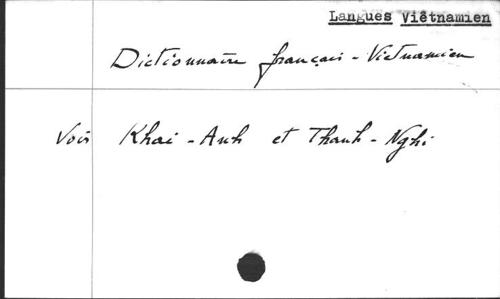 Langues Viêtnamien
Dictionnaire français - Vietnamien
Voir Khai - Anh et Thanh - Nghi